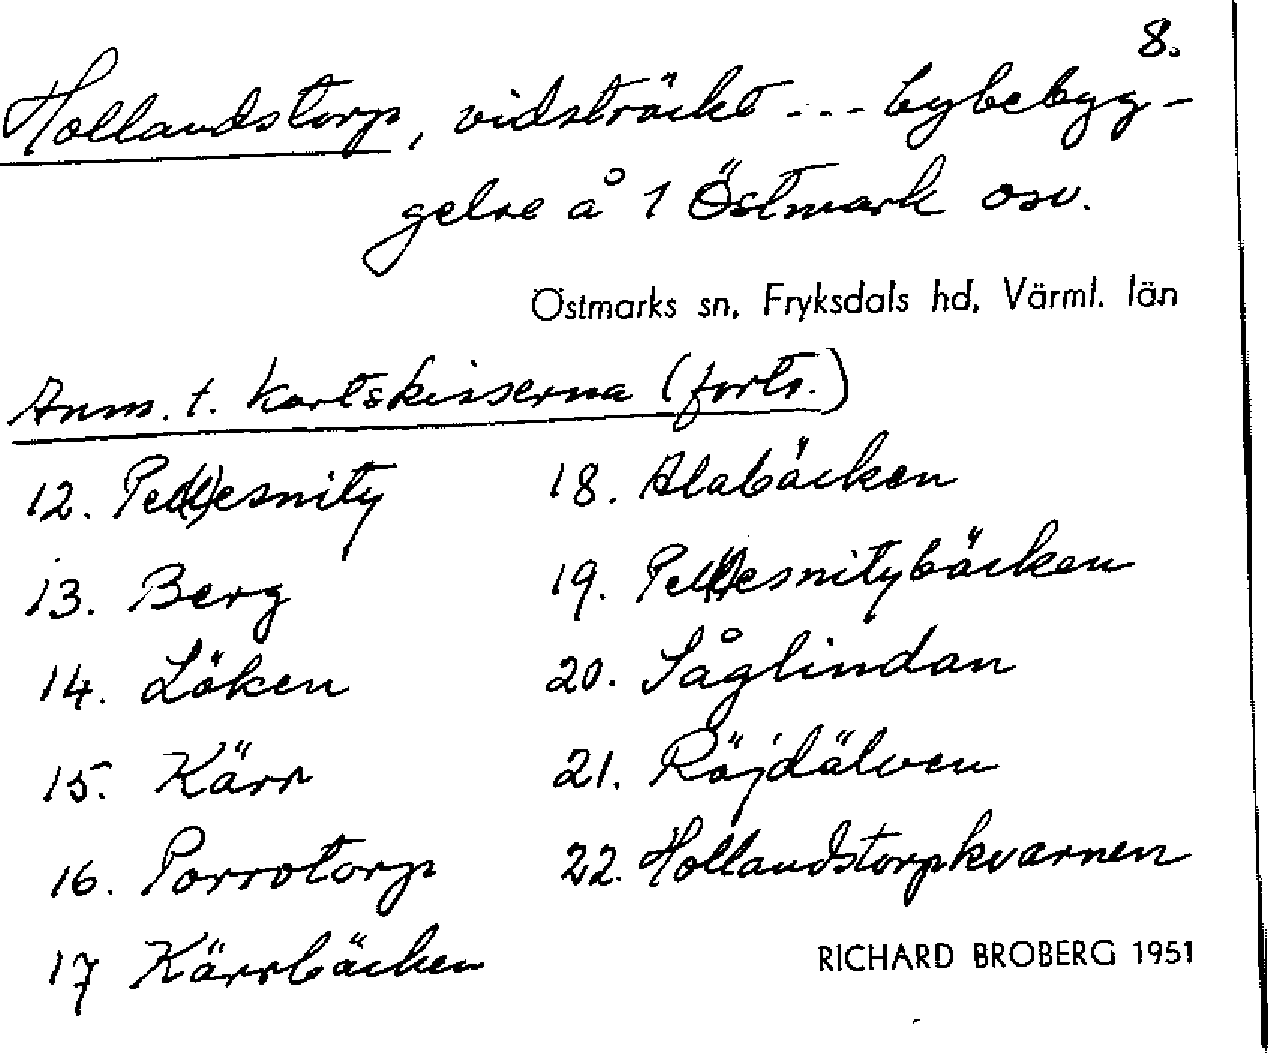 8.
Hollandstorp, vidsträckt --- bybebyg-
gelse å 1 Östmark osv.
Östmarks sn, Fryksdals hd, Värml. län
Anm. t. kartskisserna (forts.)
12. Pell(l)esnity
13. Berg
14. Löken
15. Kärr
16. Porrotorp
17 Kärrbäcken
18. Alabäcken
19. Pell(l)esnitybäcken
20. Såglindan
21. Röjdälven
22. Hollandstorpkvarnen
RICHARD BROBERG 1951